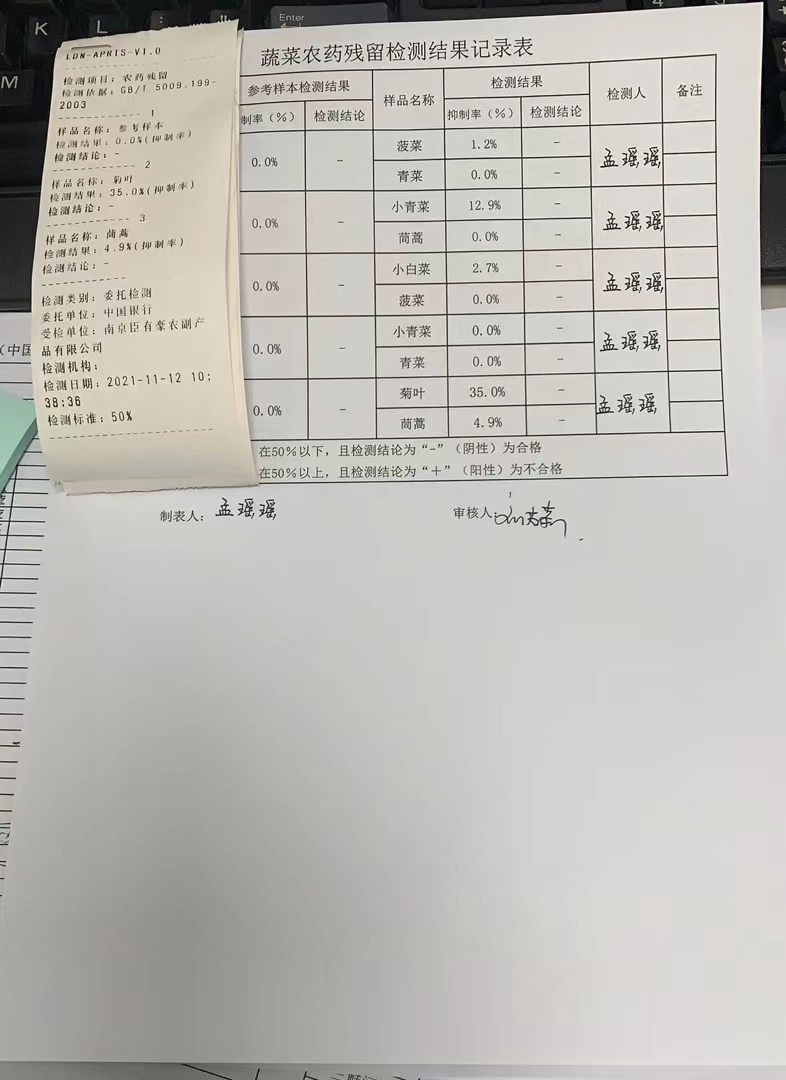 K
L
M
Enter
LDN-APRIS-V1.0
检测项目：农药残留
检测依据：GB/T 5009.199-
2003
1
样品名称：参考样本
检测结果：0.0%(抑制率)
检测结论：-
2
样品名称：菊叶
检测结果：35.0%(抑制率)
检测结论：-
3
样品名称：茼蒿
检测结果：4.9%(抑制率)
检测结论：-
检测类别：委托检测
委托单位：中国银行
受检单位：南京臣有豪农副产
品有限公司
检测机构：
检测日期：2021-11-12 10:
38:36
检测标准：50%
蔬菜农药残留检测结果记录表
参考样本检测结果 样品名称 检测结果 检测人 备注
制率（%） 检测结论 抑制率（%） 检测结论
0.0% - 菠菜 1.2% - 孟瑶瑶
青菜 0.0% -
0.0% - 小青菜 12.9% - 孟瑶瑶
茼蒿 0.0% -
0.0% - 小白菜 2.7% - 孟瑶瑶
菠菜 0.0% -
0.0% - 小青菜 0.0% - 孟瑶瑶
青菜 0.0% -
0.0% - 菊叶 35.0% - 孟瑶瑶
茼蒿 4.9% -
在50%以下，且检测结论为“-”（阴性）为合格
在50%以上，且检测结论为“+”（阳性）为不合格
制表人：孟瑶瑶 审核人：
（中国